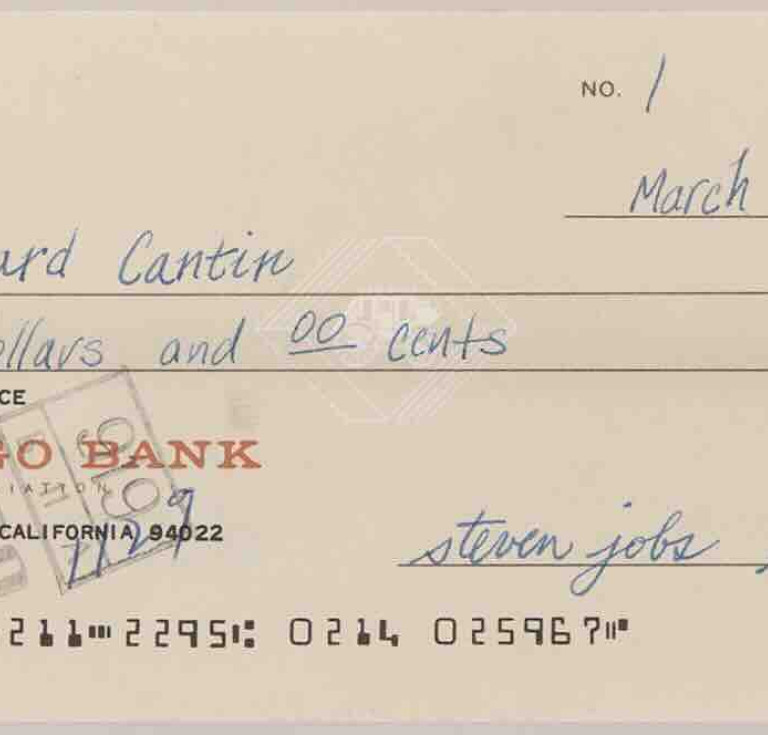 NO. 1
March
ard Cantin
ollars and 00 cents
CE
GO BANK
IATION
CALIFORNIA 94022
1129
steven jobs
211 2295 0214 025967